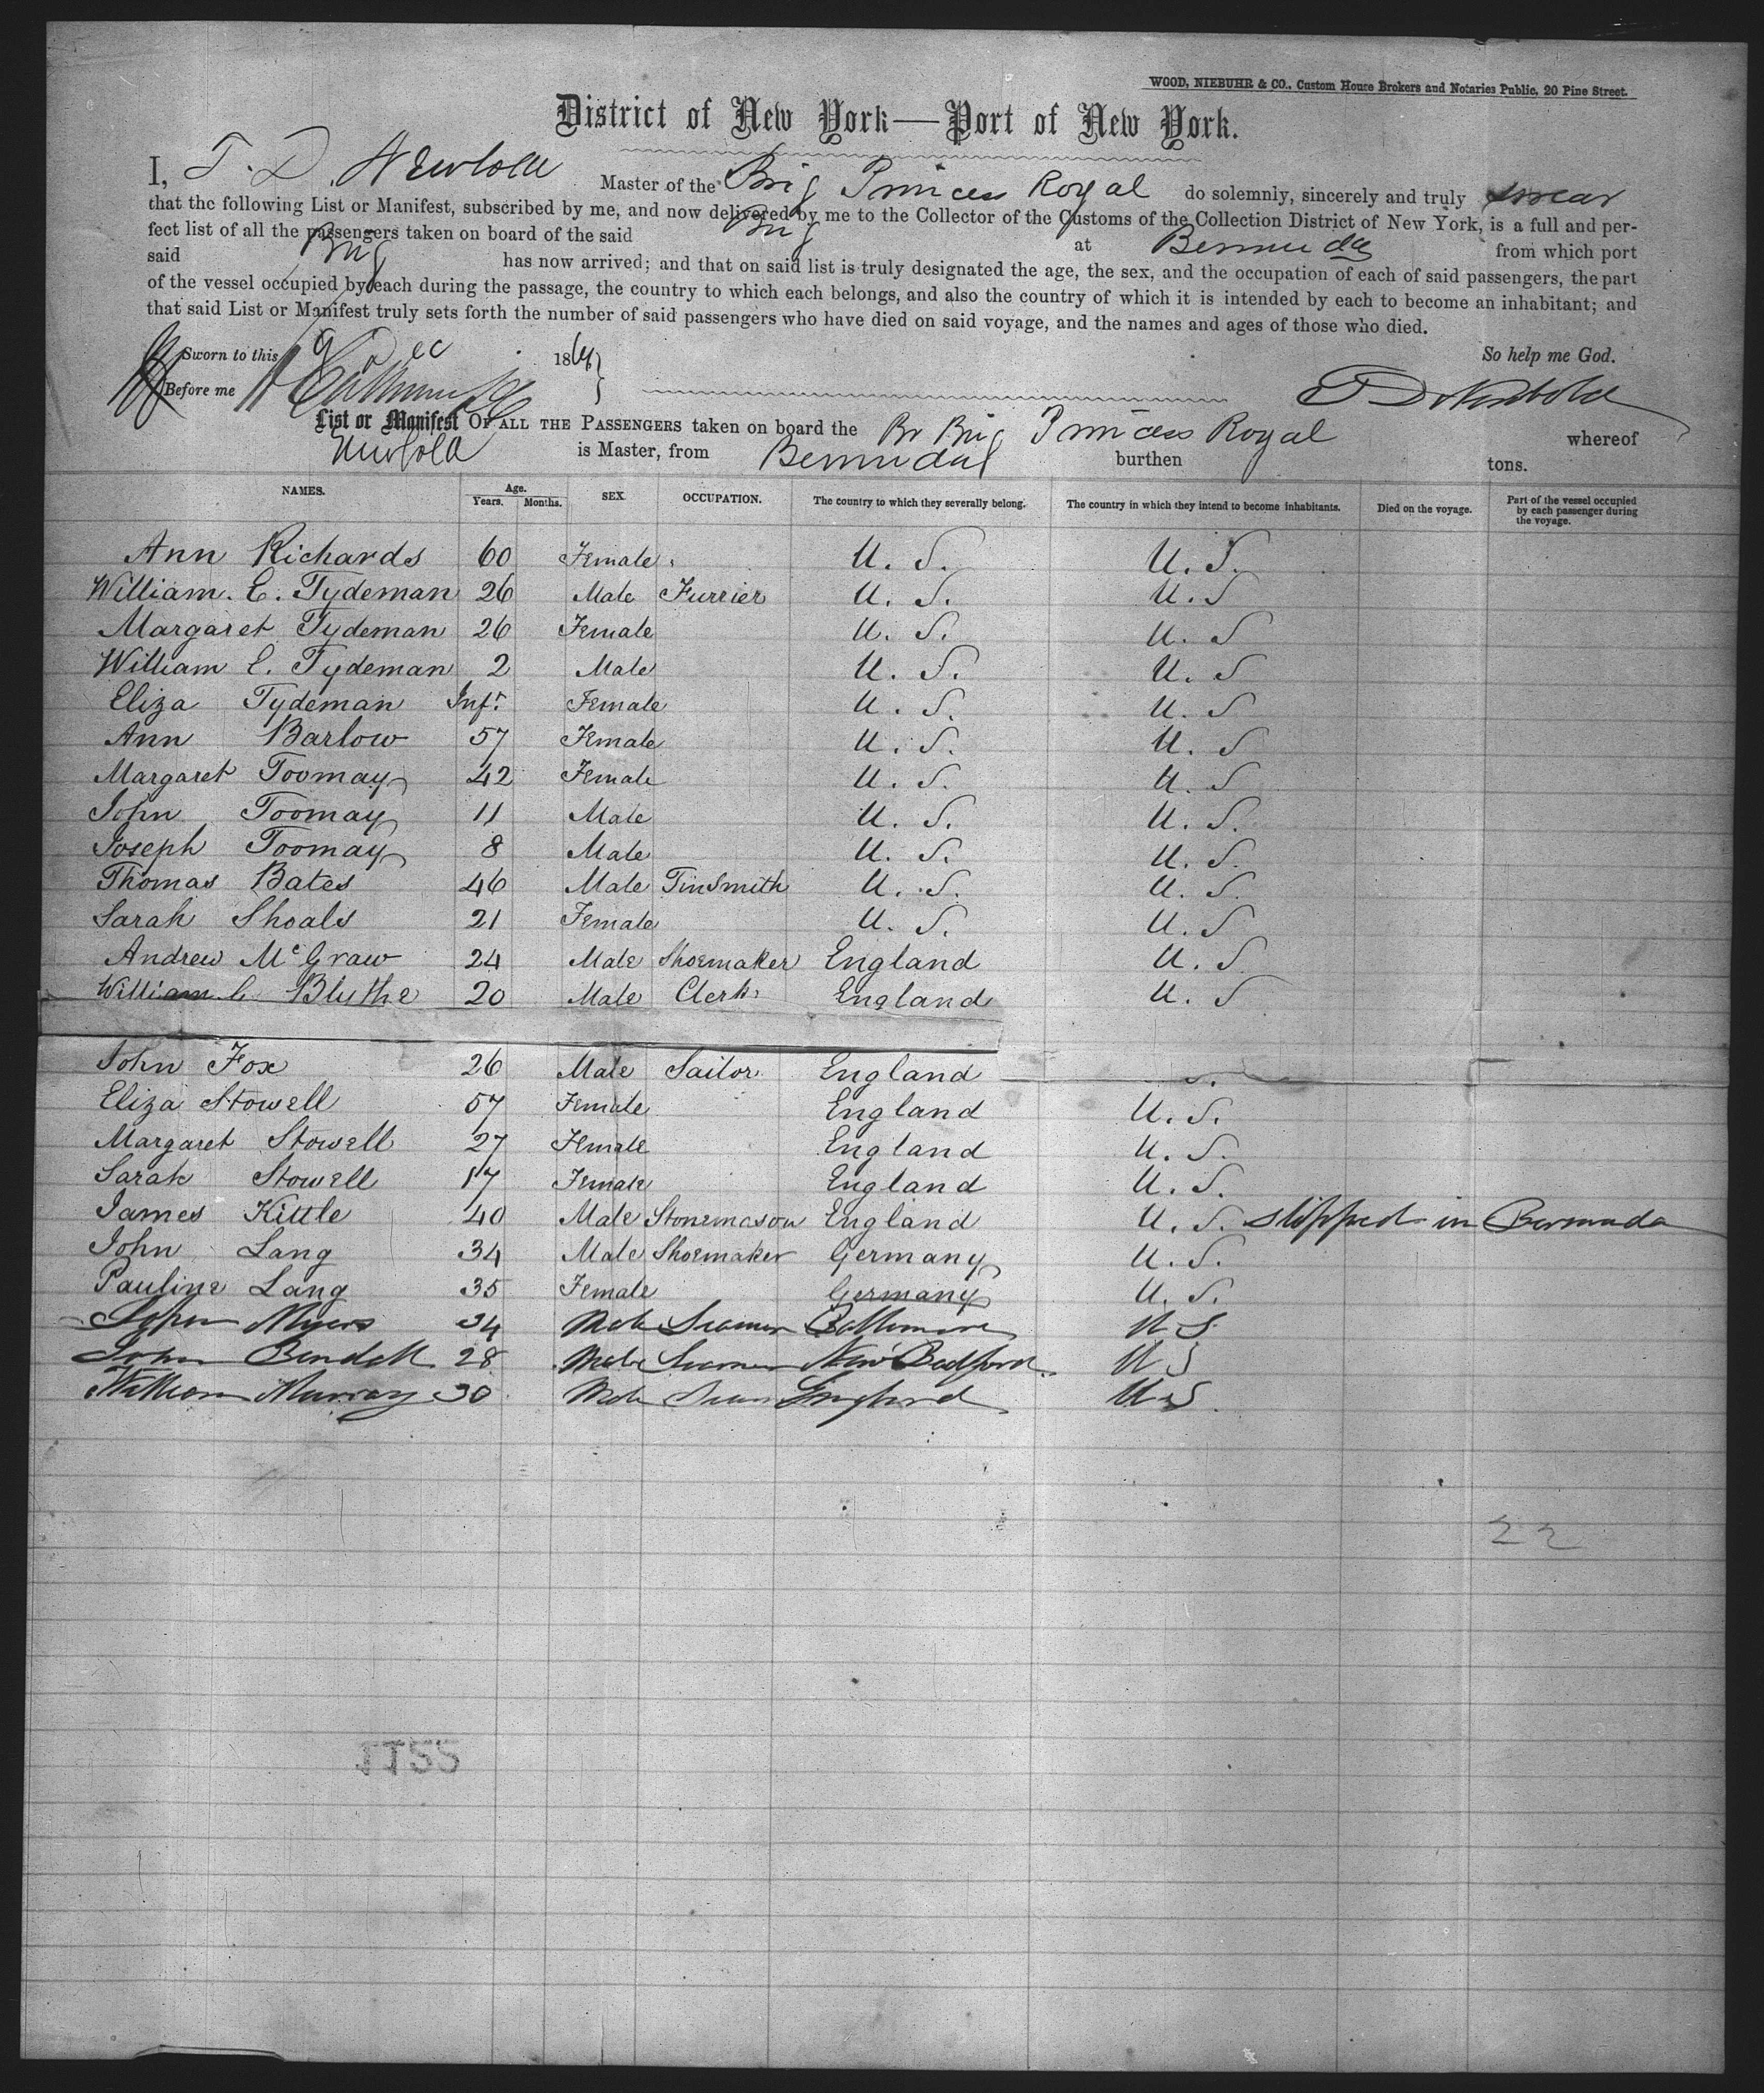 WOOD, NIEBUHR & CO., Custom House Brokers and Notaries Public, 20 Pine Street.
District of New York—Port of New York.
I, T. D. Newbold Master of the Brig Princess Royal do solemnly, sincerely and truly swear
that the following List or Manifest, subscribed by me, and now delivered by me to the Collector of the Customs of the Collection District of New York, is a full and per-
fect list of all the passengers taken on board of the said Brig at Bermudas from which port
said Brig has now arrived; and that on said list is truly designated the age, the sex, and the occupation of each of said passengers, the part
of the vessel occupied by each during the passage, the country to which each belongs, and also the country of which it is intended by each to become an inhabitant; and
that said List or Manifest truly sets forth the number of said passengers who have died on said voyage, and the names and ages of those who died.
Sworn to this 9 Dec 1864 So help me God.
Before me T D Newbold
List or Manifest OF ALL THE PASSENGERS taken on board the Br Brig Princess Royal whereof
Newbold is Master, from Bermudas burthen tons.
NAMES. Age. Years. Months. SEX. OCCUPATION. The country to which they severally belong. The country in which they intend to become inhabitants. Died on the voyage. Part of the vessel occupied by each passenger during the voyage.
Ann Richards 60 Female U. S. U. S.
William. E. Tydeman 26 Male Furrier U. S. U. S
Margaret Tydeman 26 Female U. S. U. S
William E. Tydeman 2 Male U. S. U. S
Eliza Tydeman Inft. Female U. S. U. S
Ann Barlow 57 Female U. S. U. S
Margaret Toomay 42 Female U. S. U. S
John Toomay 11 Male U. S. U. S.
Joseph Toomay 8 Male U. S. U. S.
Thomas Bates 46 Male TinSmith U. S. U. S.
Sarah Shoals 21 Female U. S. U. S
Andrew McGraw 24 Male Shoemaker England U. S
William C Bluthe 20 Male Clerk England U. S
John Fox 26 Male Sailor England
Eliza Stowell 57 Female England U. S.
Margaret Stowell 27 Female England U. S.
Sarah Stowell 17 Female England U. S.
James Kittle 40 Male Stonemason England U. S. Stopped in Bermuda
John Lang 34 Male Shoemaker Germany U. S.
Pauline Lang 35 Female Germany U. S.
John Myers 34 Male Seaman Baltimore U S
John Bendell 28 Male Seaman New Bedford U S
William Murray 30 Male Seam England U S
22
1155